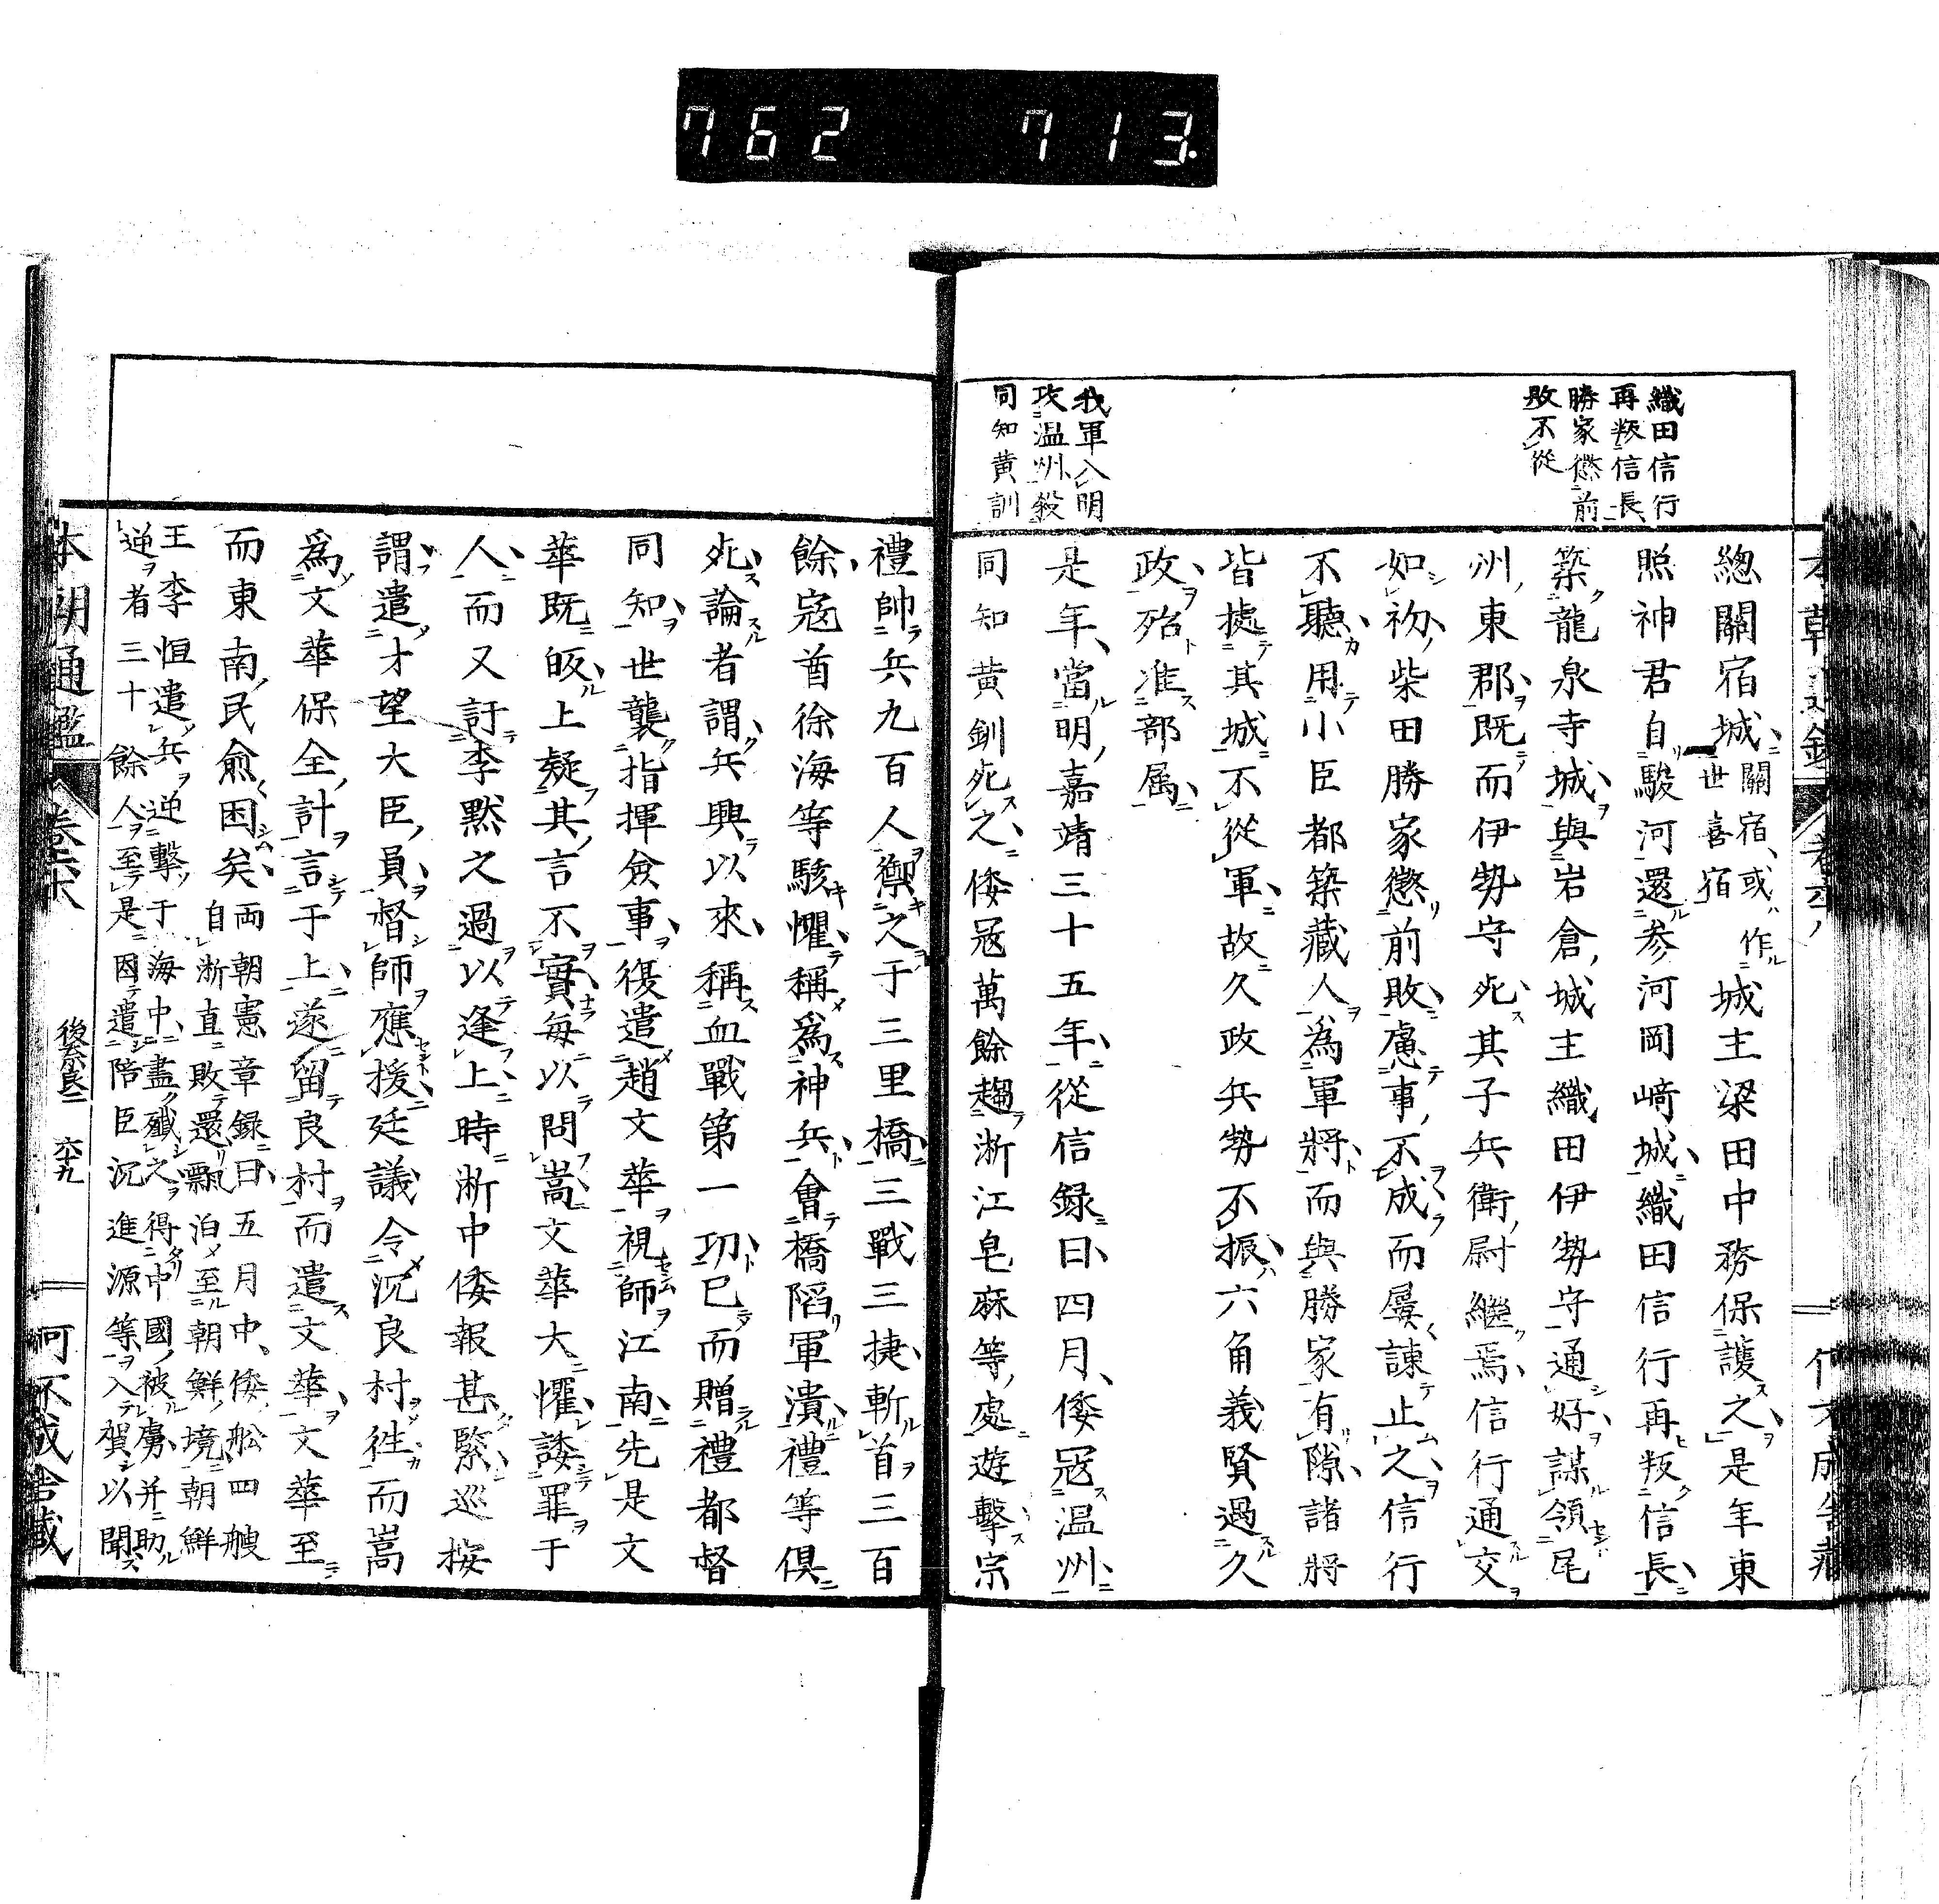 762 713.
織田信行
再叛信長
勝家懲前
敗不從
我軍入明
攻温州殺
同知黄訓
總關宿城關宿或作世喜宿城主梁田中務保護之是年東
照神君自駿河還参河岡﨑城織田信行再叛信長
築龍泉寺城與岩倉城主織田伊勢守通好謀領尾
州東郡既而伊勢守死其子兵衛尉繼焉信行通交
如初柴田勝家懲前敗慮事不成而屢諫止之信行
不聽用小臣都築藏人為軍將而與勝家有隙諸將
皆據其城不從軍故久政兵勢不振六角義賢過久
政殆准部属
是年當明嘉靖三十五年從信録曰四月倭冦温州
同知黄釧死之倭冦萬餘趨浙江皂麻等處遊擊宗
禮帥兵九百人禦之于三里橋三戰三捷斬首三百
餘寇首徐海等駭懼稱為神兵會橋陷軍潰禮等俱
死論者謂兵興以來稱血戰第一功已而贈禮都督
同知世襲指揮僉事復遣趙文華視師江南先是文
華既皈上疑其言不實每以問嵩文華大懼諉罪于
人而又訐李默之過以逢上時浙中倭報甚緊巡按
謂遣才望大臣員督師應援廷議令沉良村徃而嵩
為文華保全計言于上遂留良村而遣文華文華至
而東南民愈困矣両朝憲章録曰五月中倭舩四艘
自浙直敗還飄泊至朝鮮境朝鮮
王李恒遣兵逆擊于海中盡殲之得中國被虜并助
逆者三十餘人至是因遣陪臣沉進源等入賀以聞
本朝通鑑
後奈良二
六十九